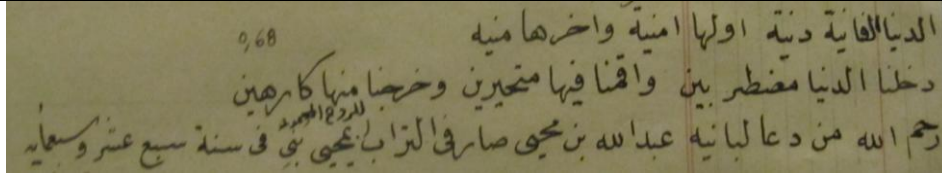 الدنيا الفانية دنية اولها امنية واخرها منيه
0,68
دخلنا الدنيا مضطربين واقمنا فيها متحيرين وخرجنا منها كارهين
رحم الله من دعا لبانيه عبد الله بن محيى صار فى التراب فى سنة سبع عشر وسبعمايه